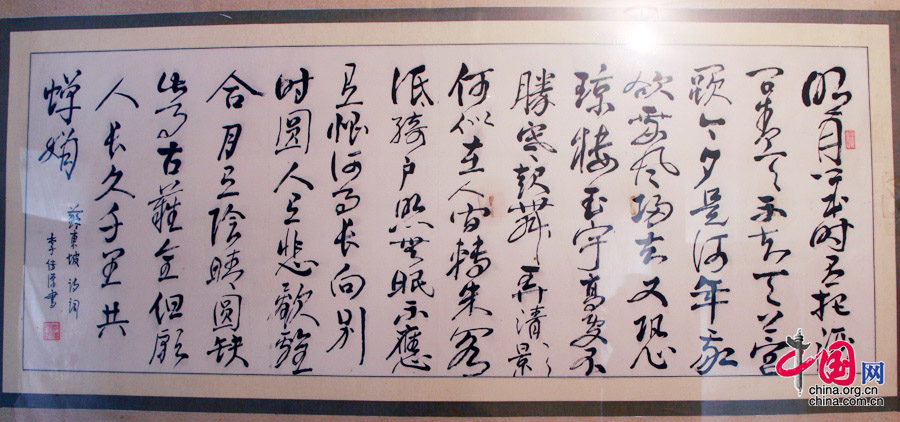 明月几时有把酒
问青天不知天上宫
阙今夕是何年我
欲乘风归去又恐
琼楼玉宇高处不
勝寒起舞弄清影
何似在人间轉朱阁
低绮户照無眠不應
有恨何事长向别
时圆人有悲歡離
合月有陰晴圆缺
此事古難全但願
人长久千里共
婵娟
蘇東坡诗词
中国网
china.org.cn
china.com.cn